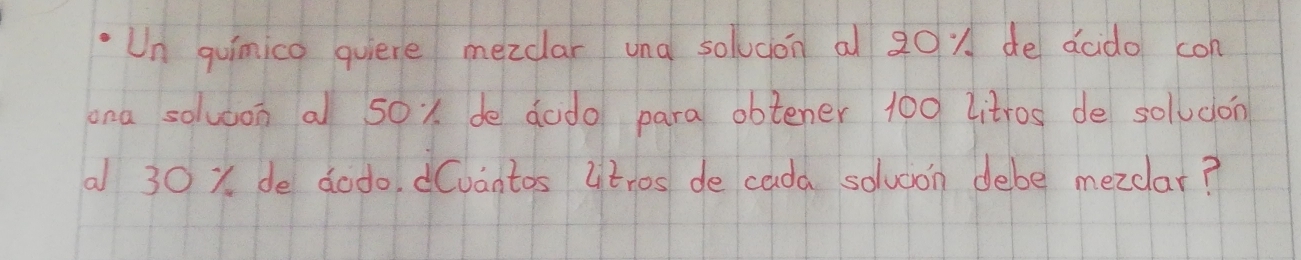 • Un químico quiere mezclar una solución al 20% de ácido con
una solución al 50% de ácido para obtener 100 Litros de solución
al 30% de ácido. ¿Cuántos Litros de cada solución debe mezclar?